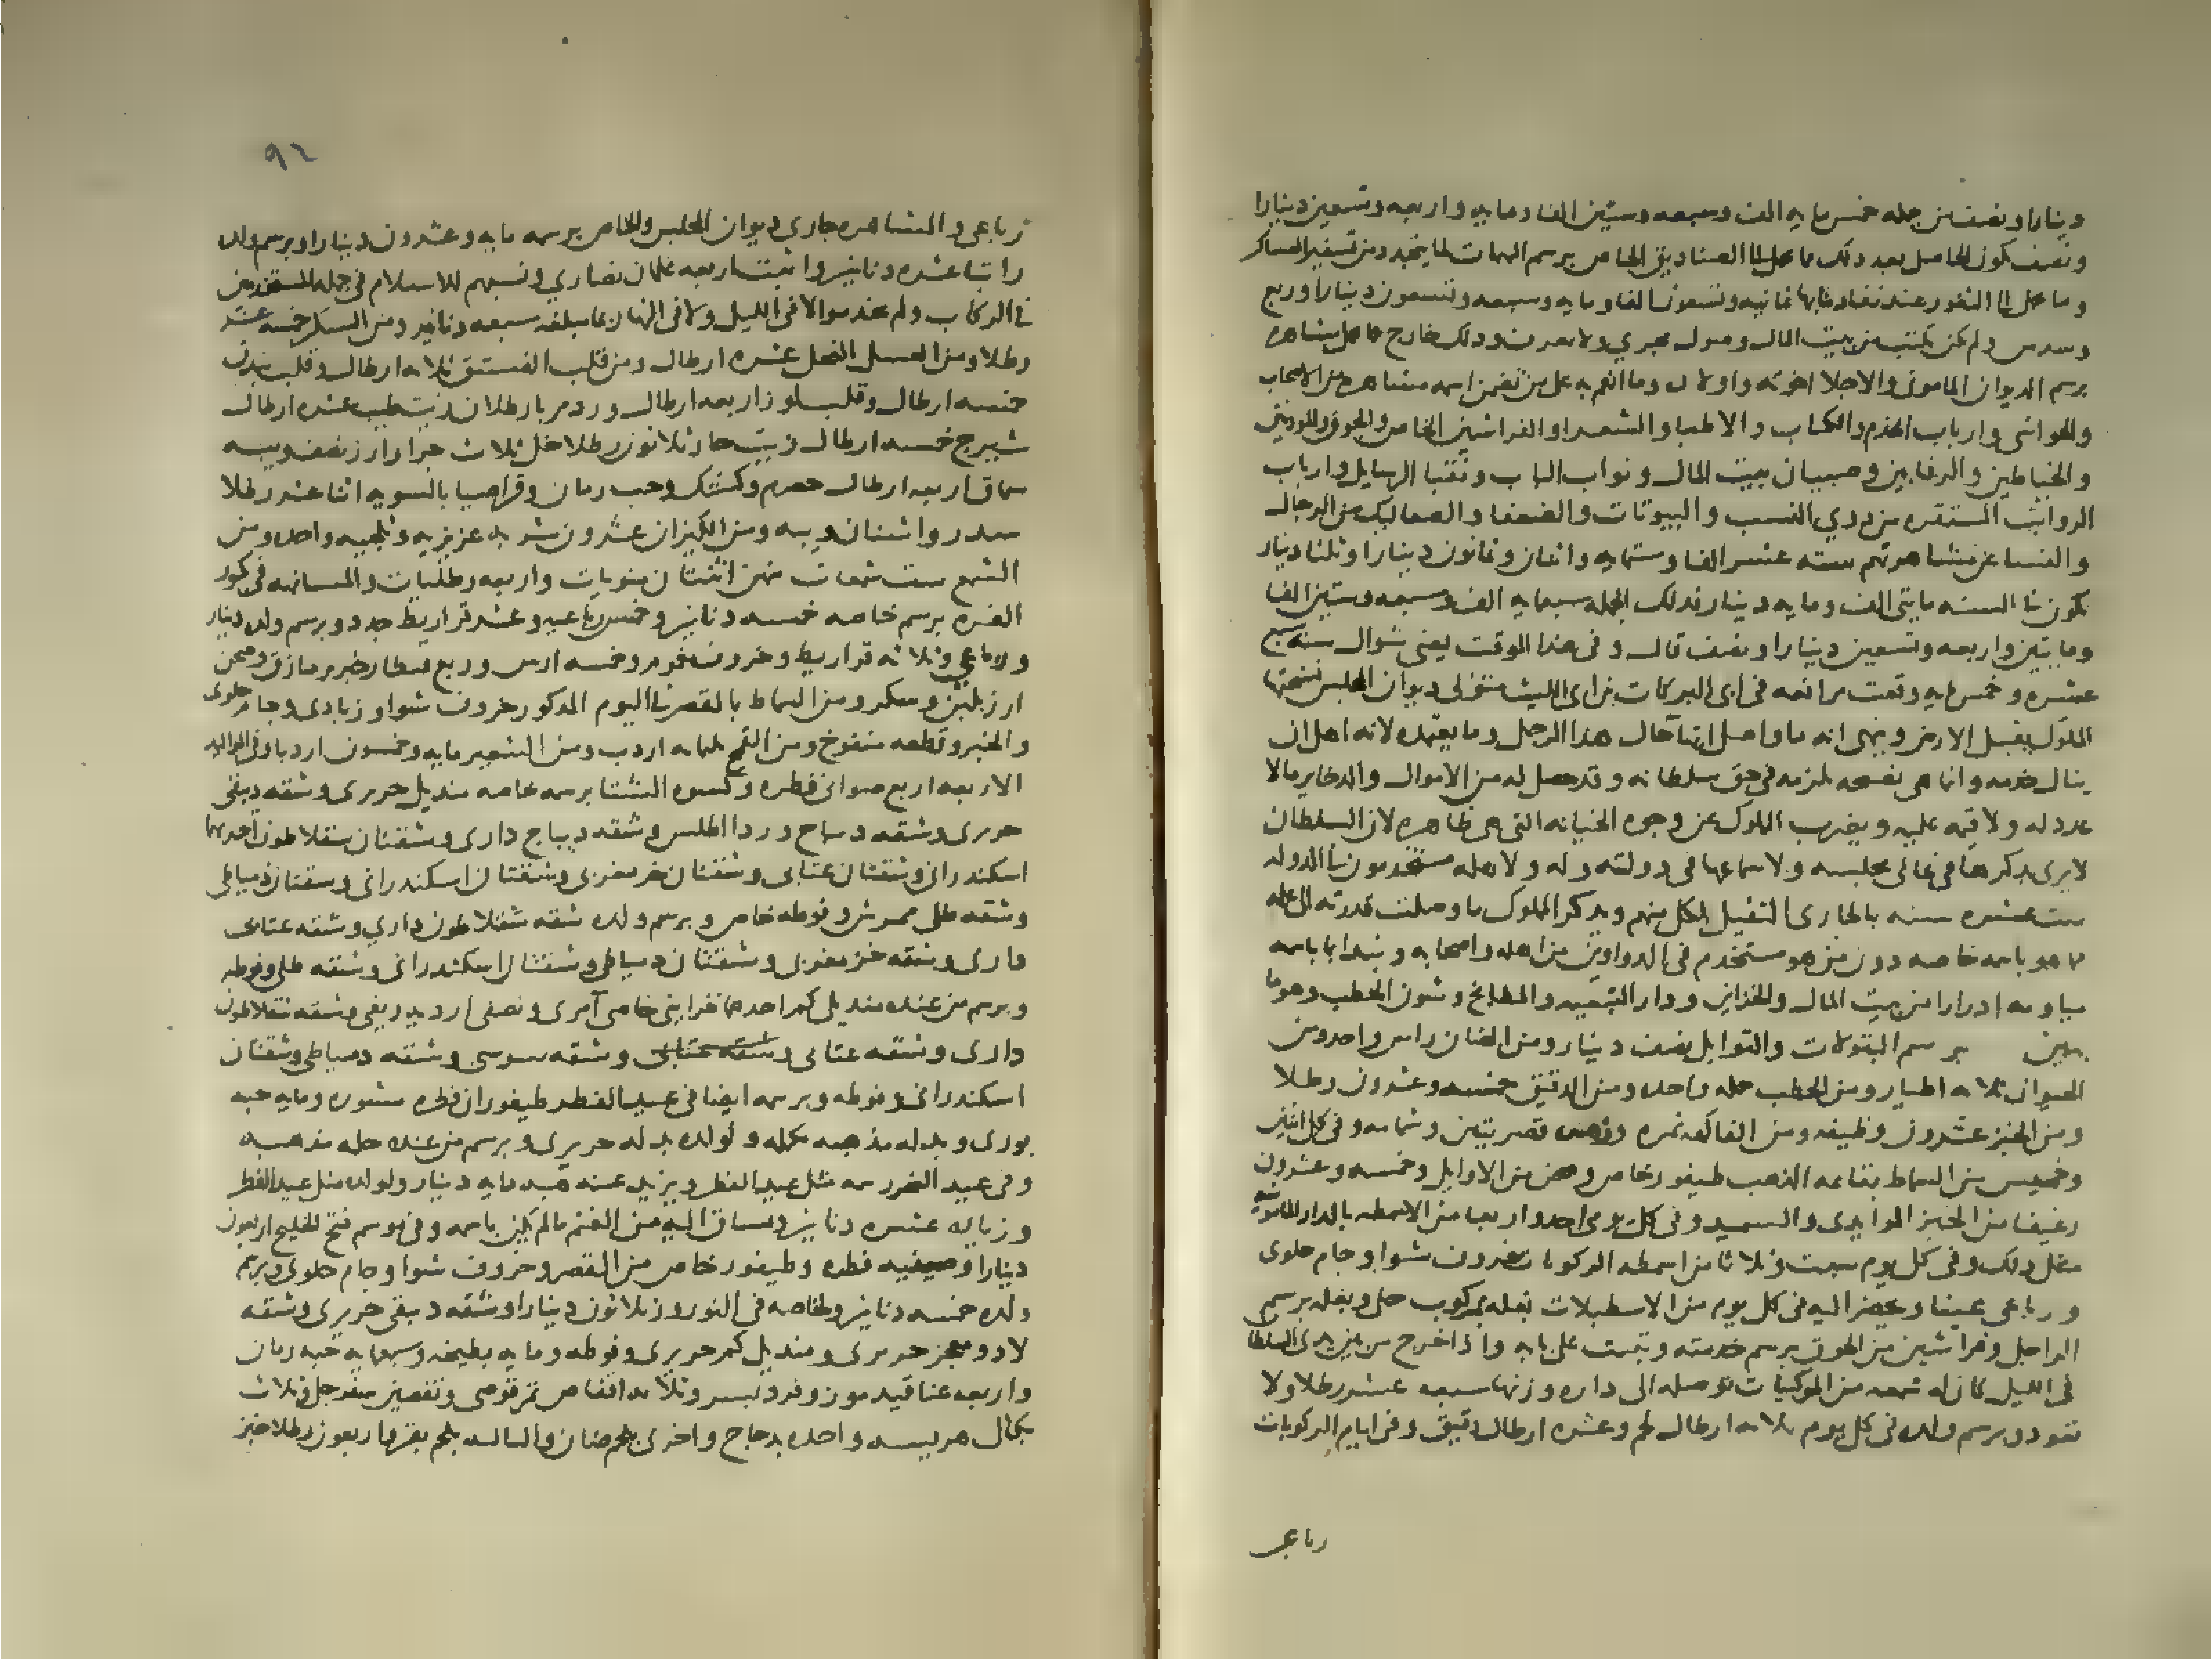 دينارا ونصف من جمله خمس مايه الف وسبعه وستين الفا ومايه واربعه وتسعين دينارا
ونصف يكون الحاصل بعد ذلك مما يحمل الى الصناديق الخاص برسم المهمات لما يتجدد من تسفير العساكر
وما يحمل الى الثغور عند نفاد ما بها ثمانيه وتسعون الفا ومايه وسبعه وتسعون دينارا وربع
وسدس ولم يكن يكتب من بيت المال وصول مجرى ولا تعرف وذلك خارج عما يحمل مشاهره
برسم الديوان المامونى والاجلا اخوته واولاده وما انعم به على من تضمن اسمه مشاهره من الاصحاب
والحواشى وارباب الخدم والكتاب والاطبا والشعرا والفراشين الخاص والجوق والمودبين
والخياطين والرفايين وصبيان بيت المال ونواب الباب ونقبا الرسايل وارباب
الرواتب المستقره من ذوي النسب والبيوتات والضعفا والصعاليك من الرجال
والنسا عن مشاهرتهم سته عشر الفا وستمايه واثنان وثمانون دينارا وثلثا دينار
يكون فى السنه مايتى الف ومايه دينار فذلك الجمله سبعمايه الف وسبعه وستين الفا
ومايتين واربعه وتسعين دينارا ونصف قال وفى هذا الوقت يعنى شوال سنه سبع
عشره وخمس مايه وقعت مرافعه فى ابى البركات بن ابى الليث متولى ديوان المجلس نسختها
المملوك يقبل الارض وينهى انه ما واصل انها حال هذا الرجل وما يعتمده لانه اهل ان
ينال خدمه وانما هى نصيحه تلزمه فى حق سلطانه وقد حصل له من الاموال والدخاير مالا
عدد له ولا قيمه عليه ويضرب المملوك عن وجوه الخيانه التى هى ظاهره لان السلطان
لا يرى بذكرها فى عالى مجلسه ولا سماعها فى دولته وله ولاهله مستخدمون فى الدوله
ست عشره سنه بالجارى الثقيل لكل منهم ويذكر المملوك ما وصلت قدرته الى علمه
مما هو باسمه خاصه دون من هو مستخدم فى الدواوين من اهله واصحابه ونبدا بما باسمه
مياومه ادرارا من بيت المال والخزاين ودار التعبيه والمطابخ وشون الحطب وهو ما
يبين برسم البقولات والتوابل نصف دينار ومن الضان راس واحد ومن
الحيوان ثلاثه اطيار ومن الحطب حمله واحده ومن الدقيق خمسه وعشرون رطلا
ومن الخبز عشرون وظيفه ومن الفاكهه ثمره وقصريتين وشمامه وفى كل اثنين
وخميس من السماط بقاعه الذهب طيفور خاص وصحن من الاوايل وخمسه وعشرون
رغيفا من الخبز الموايدى والسميد وفى كل يومى احد واربعا من الاسمطه بالدار المامونيه
مثل ذلك وفى كل يوم سبت وثلاثا من اسمطه الركوبات خروف شوا وجام حلوى
ورباعى عينا ويحضر اليه فى كل يوم من الاسطبلات بغله بمركوب حلى وبغله برسم
الراجل وفراشين من الجوق برسم خدمته وتبيت على بابه واذا خرج من بين يدى السلطان
فى الليل كان له شمعه من الموكبيات توصله الى داره وزنها سبعه عشر رطلا ولا
تعود وبرسم ولده فى كل يوم ثلاثه ارطال لحم وعشره ارطال دقيق وفى ايام الركوبات
رباعى
٩٢
رباعى والمشاهره جارى ديوان المجلس والخاص برسمه مايه وعشرون دينارا وبرسم ولده
راتبا عشره دنانير واثبت اربعه غلمان نصاري ونسبهم للاسلام فى جمله المستخدمين
فى الركاب ولم يخدموا لا فى الليل ولا فى النهار بما مبلغه سبعه دنانير ومن السكر خمسه عشر
رطلا ومن العسل النحل عشره ارطال ومن قلب الفستق ثلاثه ارطال وقلب بندق
خمسه ارطال وقلب لوز اربعه ارطال ورد مربا رطلان زيت طيب عشره ارطال
شيرج خمسه ارطال زيت حار ثلاثون رطلا خل ثلاث جرار ارز نصف ويبه
سماق اربعه ارطال حصرم وكشك وحب رمان وقراصيا بالسويه اثنا عشر رطلا
سدر واشنان ويبه ومن الكيزان عشرون شربه عزيزيه وثلجيه واحده ومن
الشمع ست شمعات منهن اثنتان منويات واربعه رطليات والمسانهه فى كور
الغره برسم خاصه خمسه دنانير وخمس رباعيه وعشر قراريط جدد وبرسم ولده دينار
ورباعى وثلاثه قراريط وخروف مقموم وخمسه ارس وربع قنطار خبز برمازق وصحن
ارز بلبن وسكر ومن السماط بالقصر فى اليوم المذكور خروف شوا وزبادى وجام حلوى
والخبز وقطعه منفوخ ومن القمح ثلثمايه اردب ومن الشعير مايه وخمسون اردبا وفى المواليد
الاربعه اربع صوانى فطره وكسوه الشتا برسمه خاصه منديل حريرى وشقه دبيقى
حريرى وشقه ديباج وردا اطلس وشقه ديباج دارى وشقتان سقلاطون احدهما
اسكندرانى وشقتان عتابى وشقتان خز مغربى وشقتان اسكندرانى وشقتان دمياطى
وشقه طلى مرش وفوطه خاص وبرسم ولده شقه سقلاطون داري وشقه عتابى
دارى وشقه خز مغربى وشقتان دمياطى وشقتان اسكندرانى وشقه طلى وفوطه
وبرسم من عنده منديل كم احدهما خزاينى خاص آمرى ونصفى اردبه ريفى وشقه سقلاطون
دارى وشقه عتابى وشقه عتابى وشقه سوسى وشقه دمياطى وشقتان
اسكندرانى وفوطه وبرسمه ايضا فى عيد الفطر طيفوران فطره مشوره ومايه حبه
بورى وبدله مذهبه مكمله ولولده بدله حريرى وبرسم من عنده حله مذهبه
وفى عيد النحر رسمه مثل عيد الفطر ويزيد عنه هبه مايه دينار ولولده مثل عيد الفطر
وزياده عشره دنانير ويساق اليه من الغنم ما لم يكن باسمه وفى موسم فتح الخليج اربعون
دينارا وصينيه فطره وطيفور خاص من القصر وخروف شوا وجام حلوى وبرسم
ولده خمسه دنانير ولخاصه فى النوروز ثلاثون دينارا وشقه دبيقى حريرى وشقه
لاد ومعجز حريرى ومنديل كم حريرى وفوطه ومايه بطيخه وسبعمايه حبه رمان
واربعه عناقيد موز وفرد بسر وثلاثه اقفاص تمر قوصى وقفصين سفرجل وثلاث
بكال هريسه واحده بدجاج واخرى بلحم ضان والثالثه بلحم بقر واربعون رطلا خبز